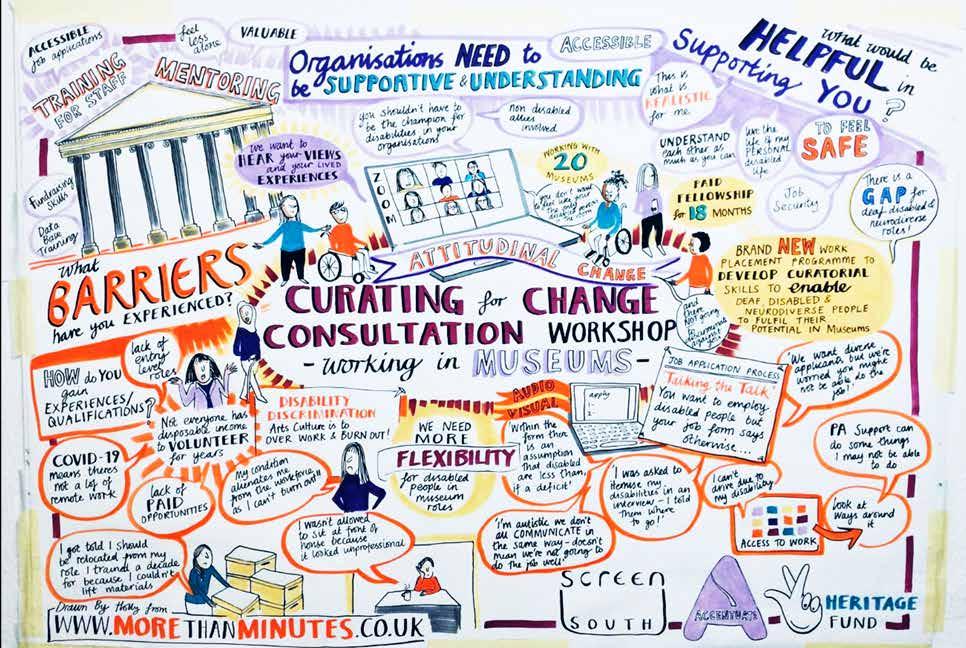 ACCESSIBLE
job applications
feel
less
alone
VALUABLE
TRAINING
FOR STAFF
MENTORING
Organisations NEED to
be SUPPORTIVE & UNDERSTANDING
ACCESSIBLE
What would be
HELPFUL in
Supporting
YOU?
This is
what is
REALISTIC
for me
you shouldn't have to
be the champion for
disabilities in your
organisations
non disabled
allies
involved
UNDERSTAND
each other as
much as you can
life of my
PERSONAL
disabled
life
TO FEEL
SAFE
We want to
HEAR your VIEWS
and your LIVED
EXPERIENCES
ZOOM
WORKING WITH
20
MUSEUMS
PAID
FELLOWSHIP
for 18 MONTHS
Job
Security
There is a
GAP for
deaf disabled &
neurodiverse
roles!
Fundraising
Skills
Data
Base
Training
BRAND NEW WORK
PLACEMENT PROGRAMME TO
DEVELOP CURATORIAL
SKILLS TO enable
DEAF, DISABLED &
NEURODIVERSE PEOPLE
TO FULFIL THEIR
POTENTIAL IN Museums
What
BARRIERS
have you EXPERIENCED?
ATTITUDINAL CHANGE
CURATING for CHANGE
CONSULTATION WORKSHOP
- working in MUSEUMS -
HOW do YOU
gain
EXPERIENCES/
QUALIFICATIONS?
lack of
entry
level
roles
Not everyone has
disposable income
to VOLUNTEER
for years
DISABILITY
DISCRIMINATION
Arts Culture is to
OVER WORK & BURN OUT!
WE NEED
MORE
FLEXIBILITY
for disabled
people in
museum
roles
AUDIO
VISUAL
apply
'Within the
form there
is an
assumption
that disabled
are less than,
if a deficit'
JOB APPLICATION PROCESS
'Talking the Talk'
You want to employ
disabled people but
your job form says
otherwise....
'We want diverse
applicants but we're
worried you might
not be able to do the
job'
COVID-19
means theres
not a lot of
remote work
My condition
alienates me
from the workforce
as I can't burn out"
lack of
PAID
OPPORTUNITIES
'I was asked to
itemise my
disabilities in an
interview - I told
them where
to go!'
I can't
drive due to
my disability
PA Support can
do some things
I may not be able
to do
ACCESS TO WORK
Look at
ways around
it
I got told I should
be relocated from my
role I trained a decade
for because I couldn't
lift materials
I wasn't allowed
to sit at front of
house because
it looked unprofessional
'I'm autistic we don't
all COMMUNICATE in
the same way - doesn't
mean we're not going to
do the job well'
Drawn By Holly from
WWW.MORETHANMINUTES.CO.UK
SCREEN
SOUTH
ACCENTUATE
HERITAGE
FUND